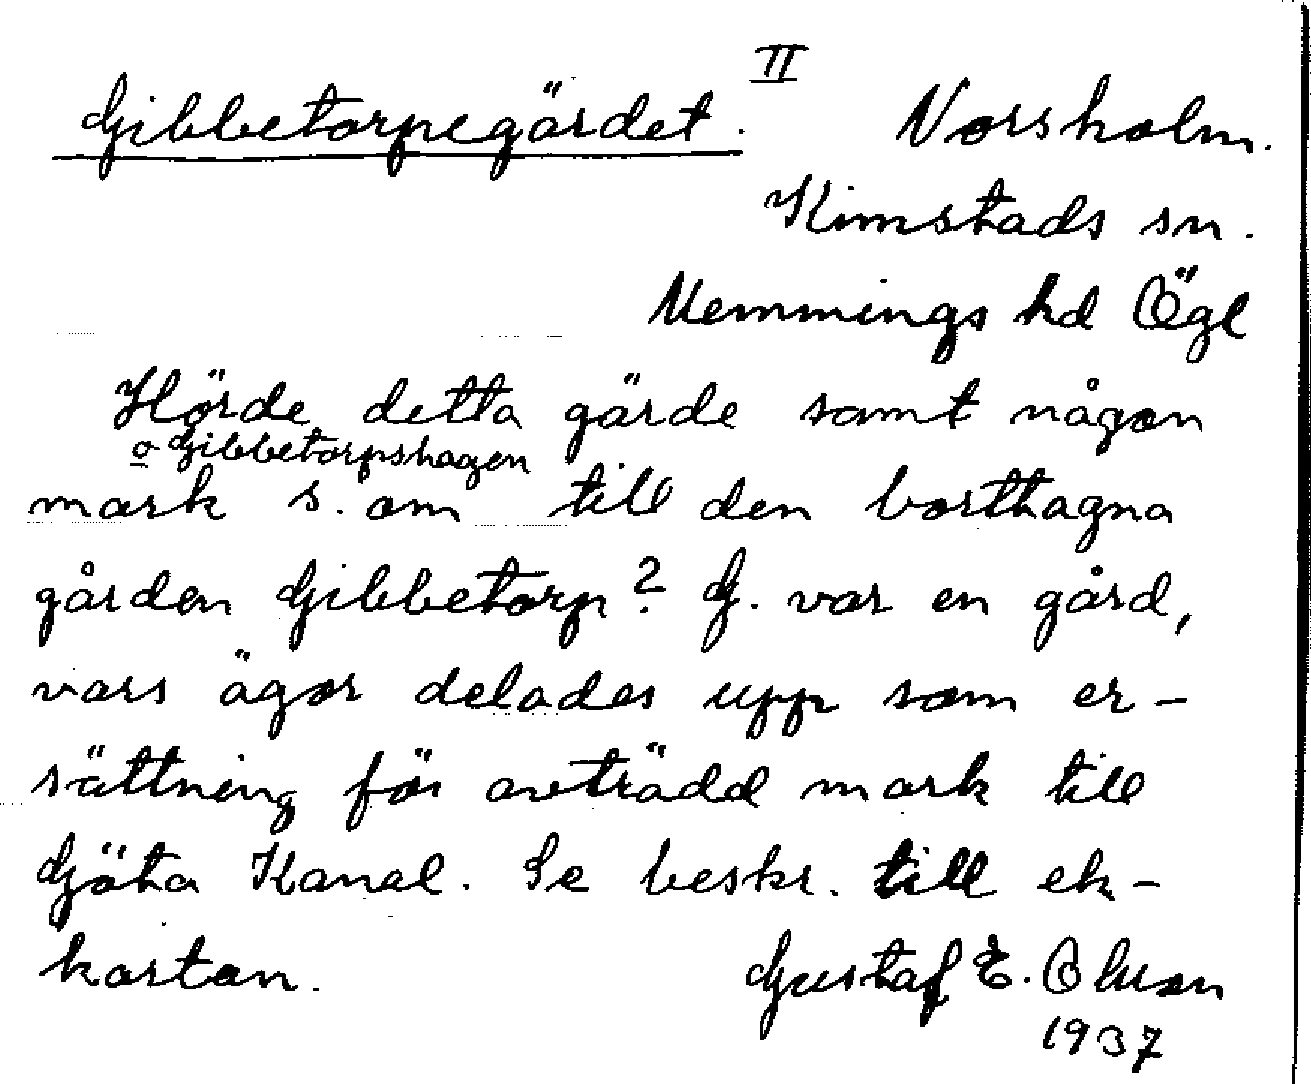 II
Gibbetorpegärdet. Norsholm.
Kimstads sn.
Memmings hd Ögl
Hörde detta gärde samt någon
o Gibbetorpshagen
mark s. om till den borttagna
gården Gibbetorp? G. var en gård,
vars ägor delades upp som er-
sättning för avträdd mark till
Göta Kanal. Se beskr. till ek-
kartan.
Gustaf E. Olsson
1937